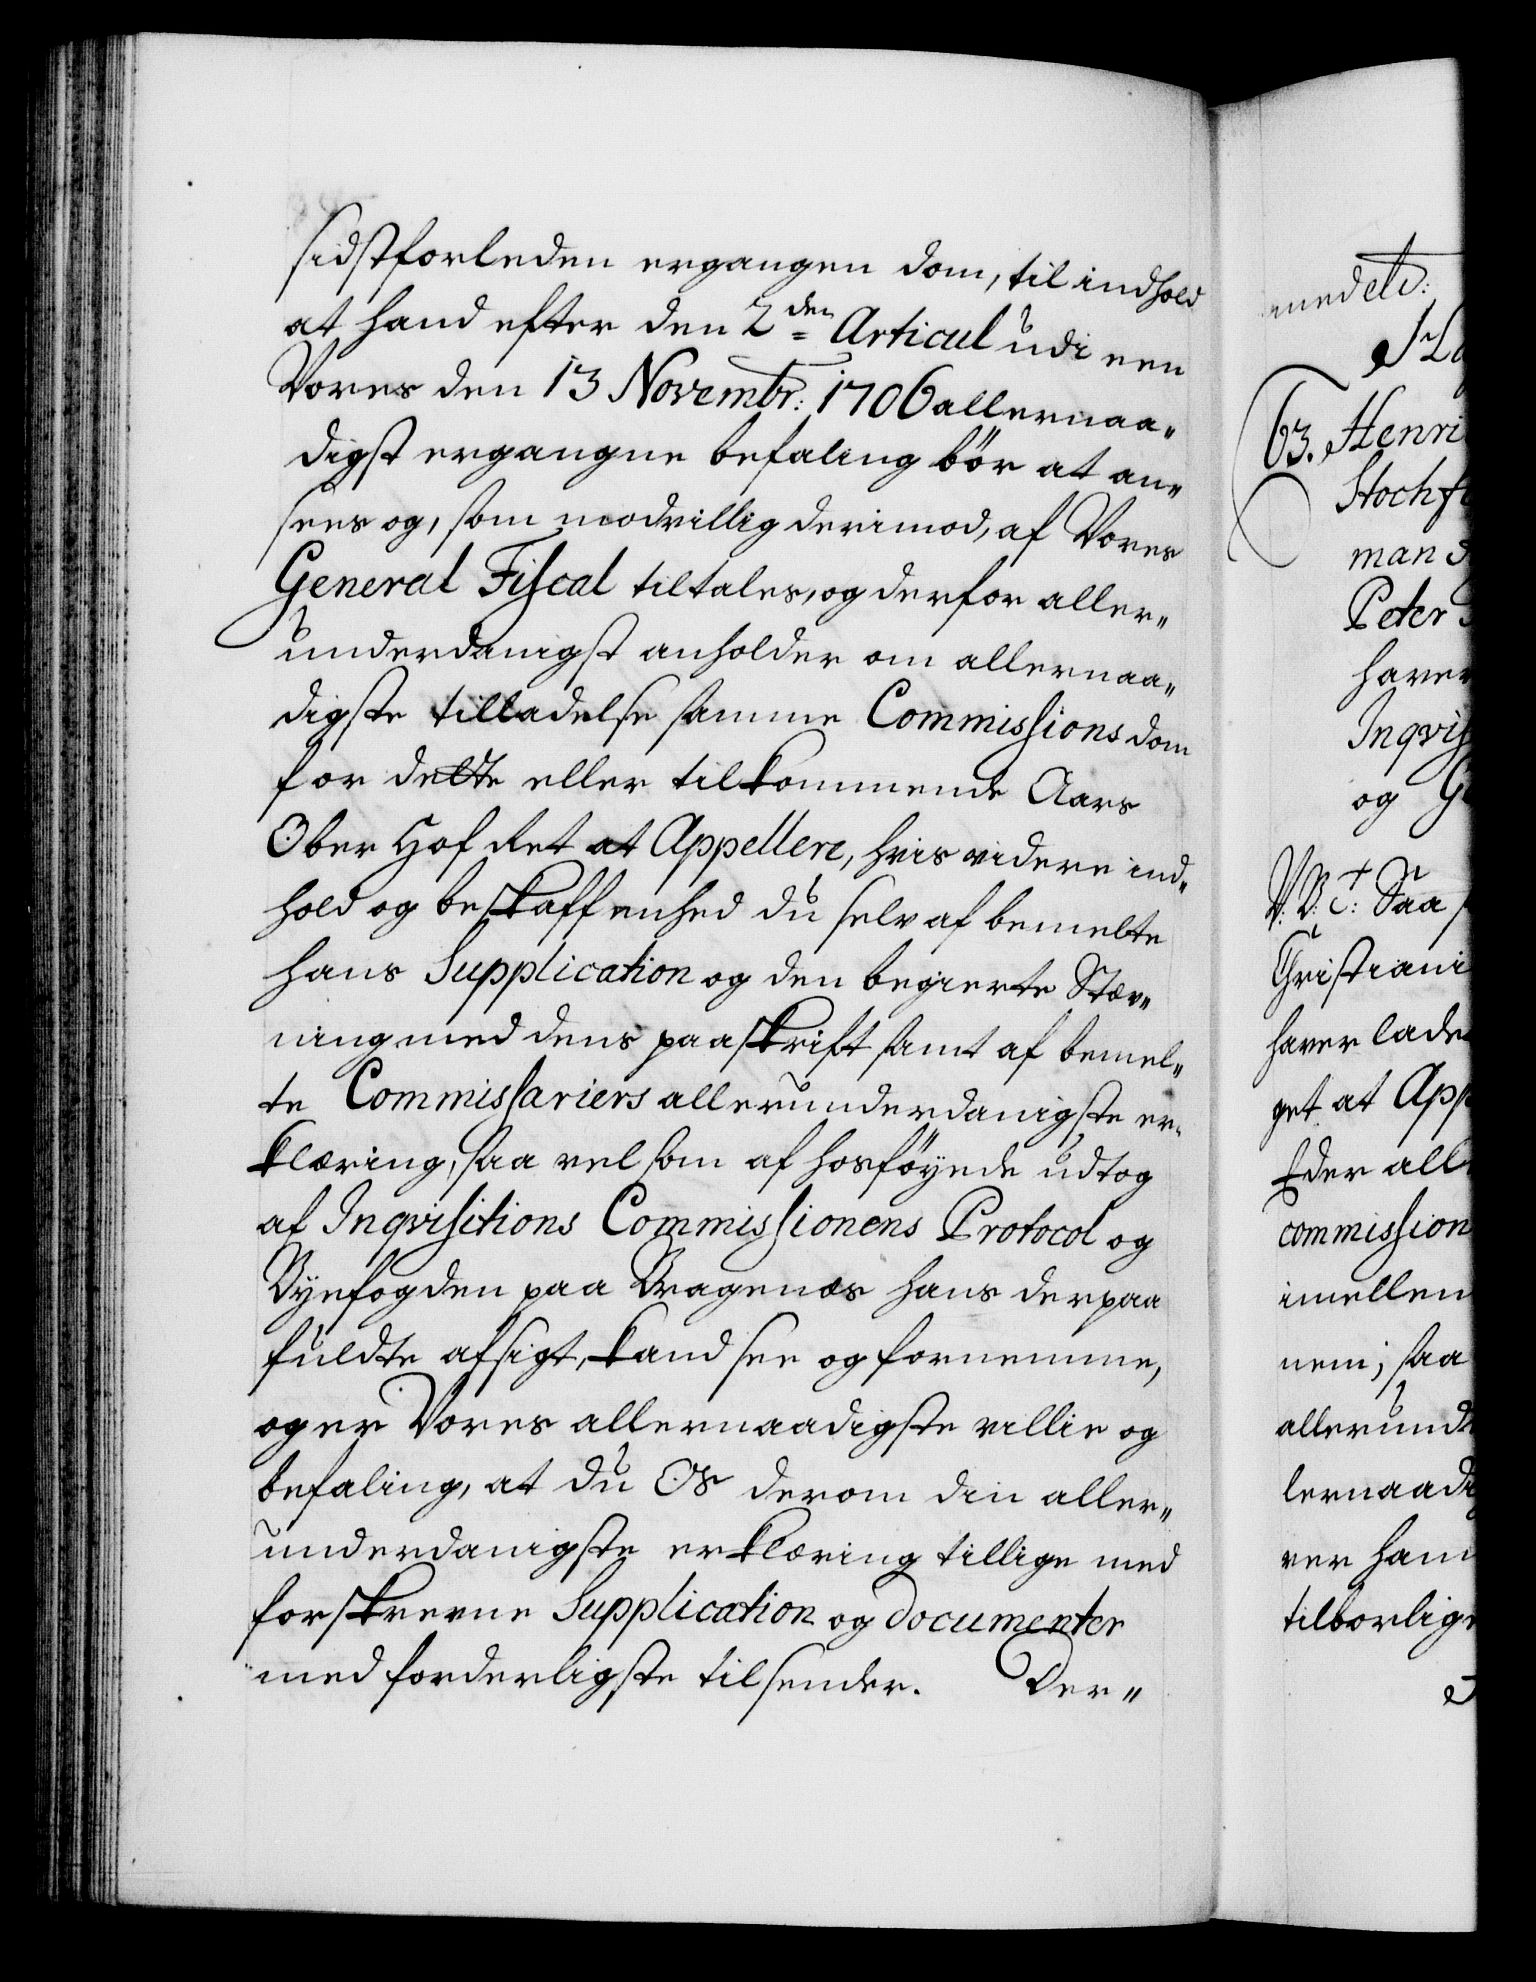 sidstforleden ergangen dom, til indhold
at hand efter den 2den Articul udi een
Vores den 13 Novembr: 1706 allernaa„
digst ergangne befaling bör at an„
sees og, som modvillig derimod, af Vores
General Fiscal tiltales, og derfor aller„
underdanigst anholder om allernaa„
digste tilladelse samme Commissions dom
for dette eller tilkommende Aars
Ober Hof Ret at Appellere, hvis videre ind„
hold og beskaffenhed du selv af bemelte
hans Supplication og den begierte Stæv„
ning med dens paaskrift samt af bemel„
te Commissariers allerunderdanigste er„
klæring, saa vel som af hosföyede udtog
af Inqvisitions Commissionens Protocol og
Byefogden paa Bragenæs hans derpaa
fuldte afsigt, kand see og fornemme,
og er Vores allernaadigste villie og
befaling, at du Os derom din aller„
underdanigste erklæring tillige med
forskrevne Supplication og documenter
med forderligste tilsender. Der„
63. Henri
man
Peter
haver
Inqvis
og
Saa
Christiani
haver lade
get at App
Eder all
commission
imellem
nem; saa
allerund
lernaadi
ver ham
tilborlig